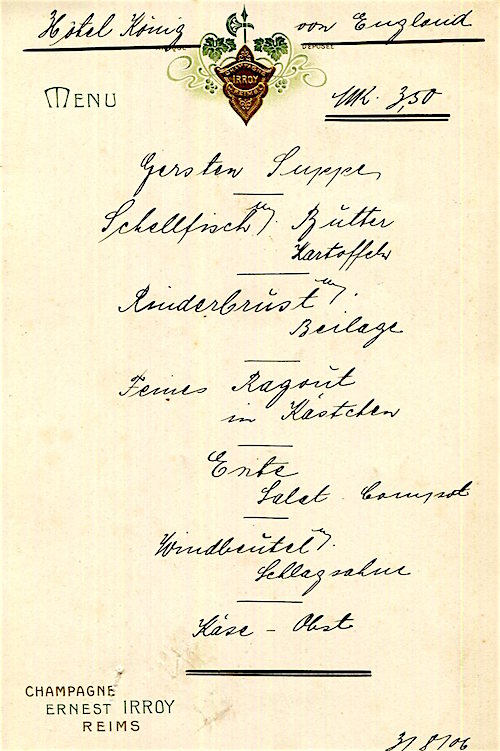 Hôtel König von England
DÉPOSÉE
CHAMPAGNE
IRROY
REIMS
MENU
Mk. 3,50
Gersten Suppe
Schellfisch m. Butter
Kartoffeln
Rinderbrust m.
Beilage
Feines Ragout
in Kästchen
Ente
Salat Compot
Windbeutel m.
Schlagsahne
Käse - Obst
CHAMPAGNE
ERNEST IRROY
REIMS
3/8/06